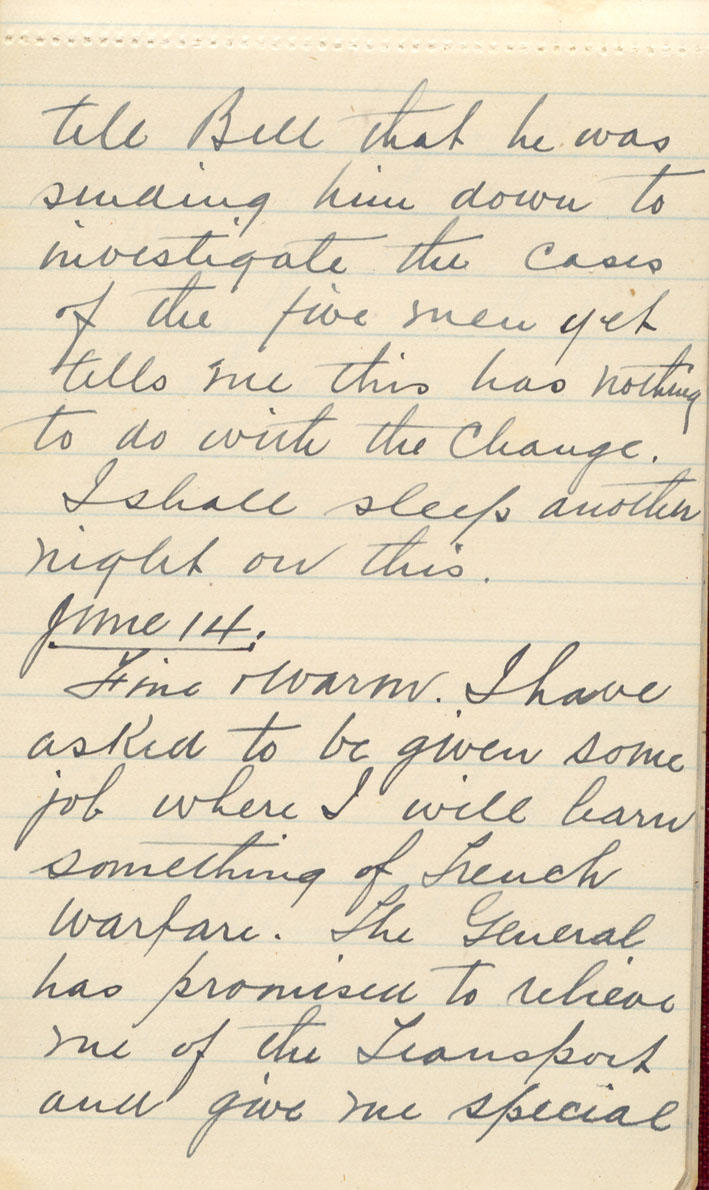 tell Bill that he was
sending him down to
investigate the cases
of the five men yet
tells me this has nothing
to do with the Change.
I shall sleep another
night on this.
June 14.
Fine & Warm. I have
asked to be given some
job where I will learn
something of Trench
Warfare. The General
has promised to relieve
me of the Transport
and give me special